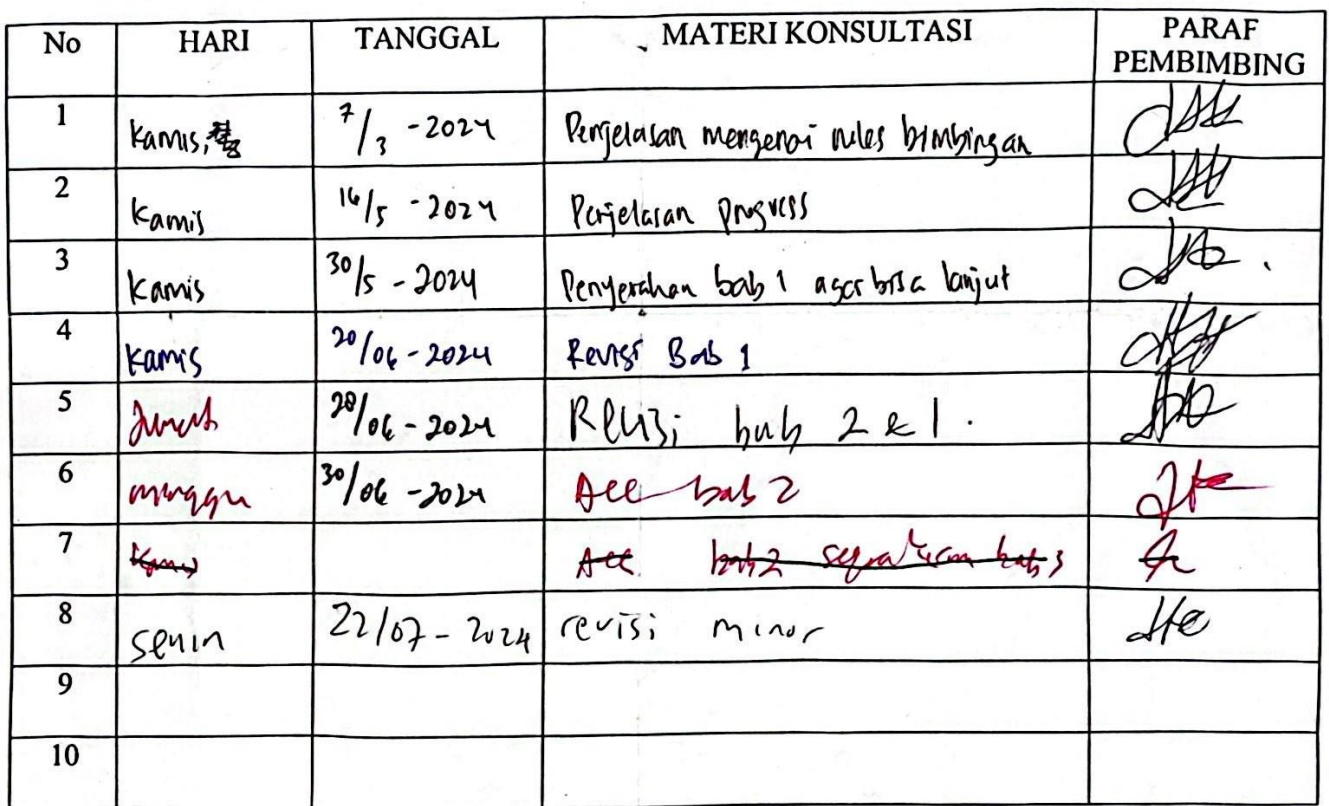 No HARI TANGGAL MATERI KONSULTASI PARAF PEMBIMBING
1 Kamis, 7/3 - 2024 Penjelasan mengenai rules bimbingan
2 Kamis 16/5 - 2024 Penjelasan progress
3 Kamis 30/5 - 2024 Penyerahan bab 1 agar bisa lanjut
4 Kamis 20/06 - 2024 Revisi Bab 1
5 Jumat 28/06 - 2024 Revisi bab 2 & 1.
6 minggu 30/06 - 2024 Acc bab 2
7 Kamis Acc bab 2 bab 3
8 senin 22/07 - 2024 revisi minor
9
10